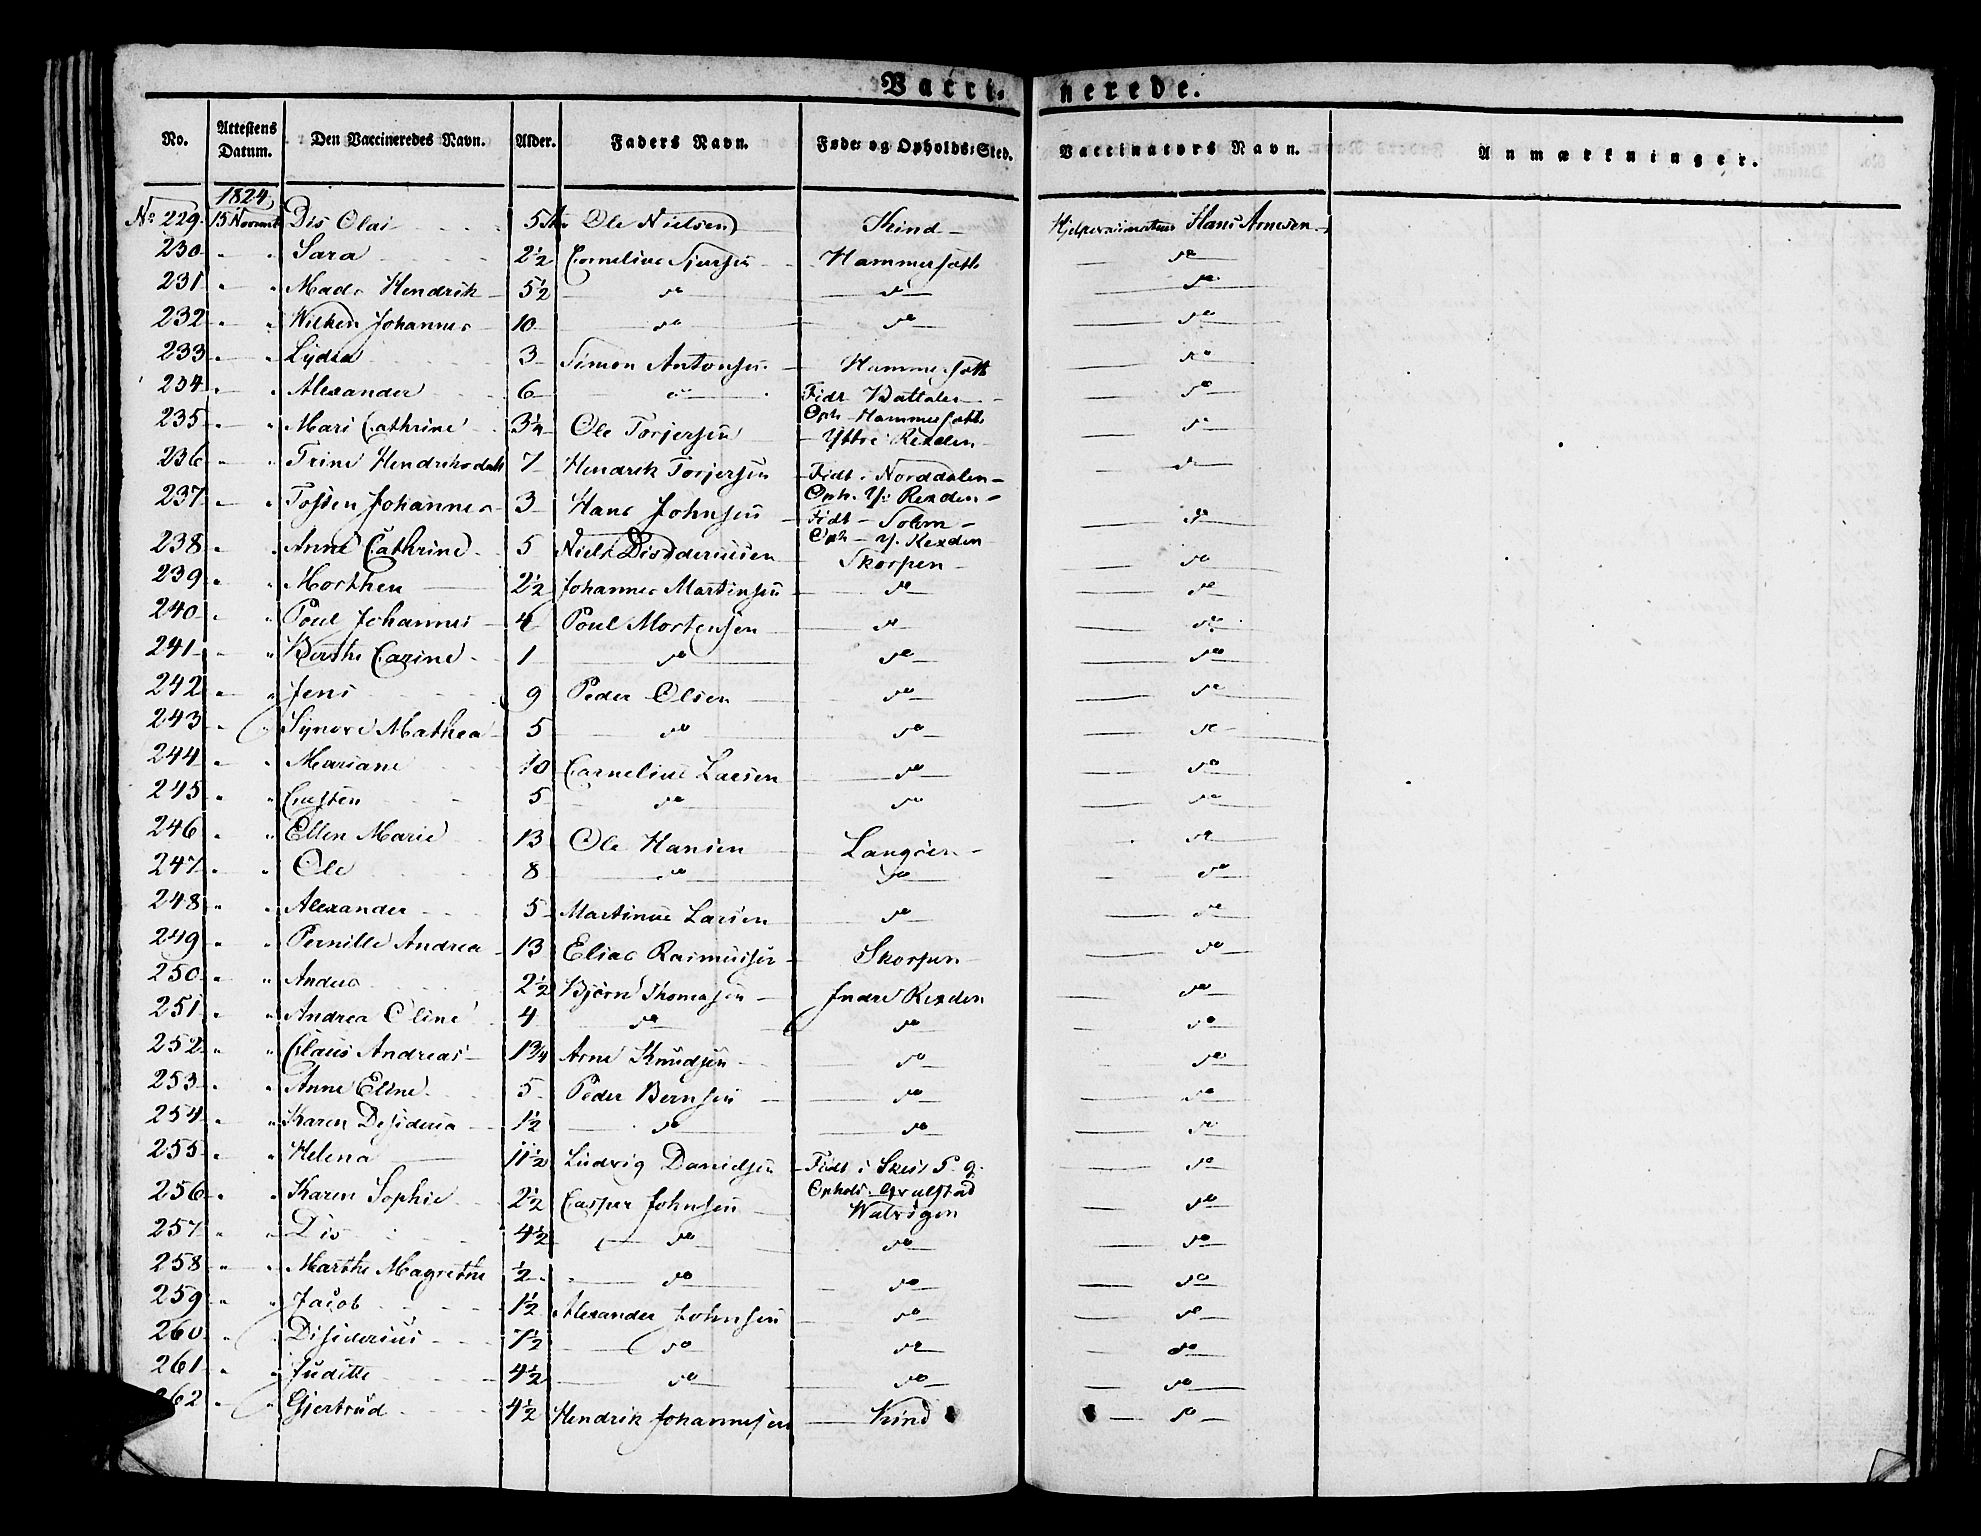 Vacci- nerede.
No. Attestens Datum. Den Vaccineredes Navn. Alder. Faders Navn. Føde- og Opholds-Sted. Vaccinators Navn. Anmærkninger.
1824
No 229. 15 Novemb Dis Olai 5 Ole Nielsen Kind Hans Arnesen
230 " " Sara 2½ Cornelius Hammersæth do
231 " " Mads Hendrik 5½ do do do
232 " " Wilken Johannes 10 do do do
233 " " Lydia 3 Simon Antonsen Hammersætt do
234 " " Alexander 6 do Födt Oph. Hammersæth do
235 " " Mari Cathrine 3¼ Ole Torjersen Yttre Rexden do
236 " " Trine Hendriksdatt 7 Hendrik Torjersen Födt i Norddalen Oph. Y: Rexden do
237 " " Tosten Johannes 3 Hans Johnsen Födt Oph. y. Rexden do
238 " " Anne Cathrine 5 Niels Skorpen do
239 " " Morthen 2½ Johannes Martinsen do do
240 " " Poul Johannes 4 Poul Mortensen do do
241 " " Berthe Carine 1 do do do
242 " " Jens 9 Peder Olsen do do
243 " " Synove Mathea 5 do do do
244 " " Mariane 10 Cornelius Larsen do do
245 " " Casten 5 do do do
246 " " Ellen Marie 13 Ole Hansen Langöen do
247 " " Ole 8 do do do
248 " " Alexander 5 Martinus Larsen do do
249 " " Pernille Andrea 13 Elias Rasmussen Skorpen do
250 " " Anders 2½ Björne Thomasen Indre Rexden do
251 " " Andrea Oline 4 do do do
252 " " Claus Andreas 1¾ Arne Knudsen do do
253 " " Anne Eline 5 Peder Bernsen do do
254 " " Karen Desideria 1½ do do do
255 " " Helena 11½ Ludvig Danielsen Födt i P. g. Ophold. do
256 " " Karen Sophie 2½ Casper Johnsen do
257 " " Dis 4½ do do do
258 " " Marthe Magrethe ½ do do do
259 " " Jacob 1½ Alexander Johnsen do do
260 " " Disiderius 7½ do do do
261 " " Juditte 4½ do do do
262 " " Gjertrud 4½ Hendrik Johannesen Kind do